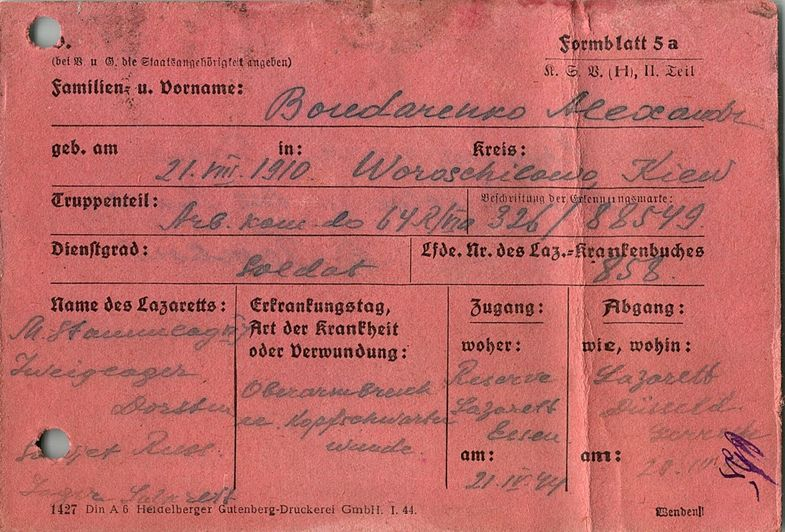 (bei V u G. die Staatsangehörigkeit angeben)
Formblatt 5a
K. S. V. (H), II. Teil
Familien- u. Vorname:
Bondarenko Alexandr
geb. am in: Kreis:
21. VIII. 1910. Woroschilowo, Kiew
Truppenteil: Beschriftung der Erkennungsmarke:
Arb. kom. do 326/88549
Dienstgrad: Lfde. Nr. des Laz.-Krankenbuches
Soldat 858.
Name des Lazaretts:
M. Stammlager
Zweiglager
Dorsten
Lager Lazarett
Erkrankungstag,
Art der Krankheit
oder Verwundung:
Oberarmbruch
Kopfschwarten
wunde
Zugang:
woher:
Reserve
Lazarett
Essen
am:
21. IV 44
Abgang:
wie, wohin:
Lazarett
am:
1427 Din A 6 Heidelberger Gutenberg-Druckerei GmbH. I. 44.
Wenden!